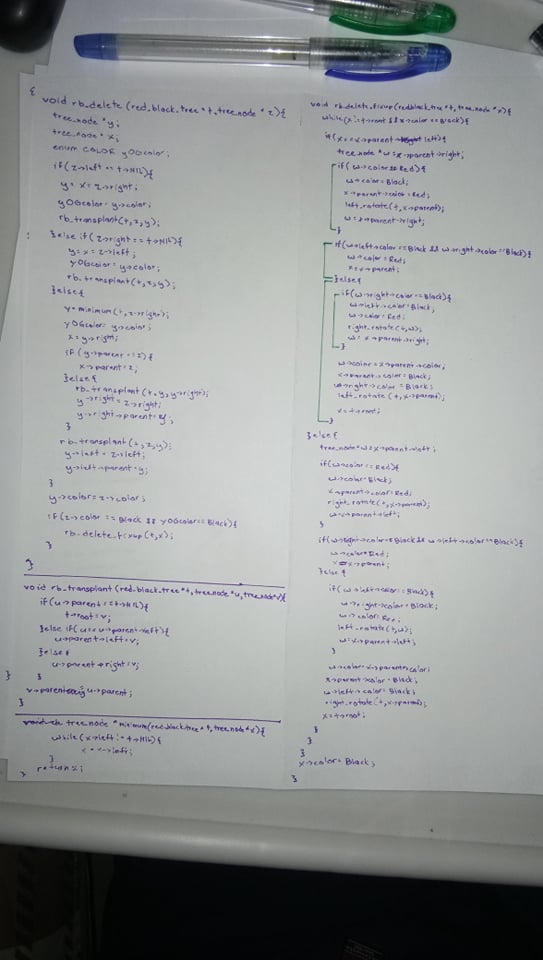 {
void rb_delete (red_black_tree *t, tree_node *z){
tree_node *y;
tree_node *x;
enum COLOR yOGcolor;
if(z->left == t->NIL){
y = x = z->right;
yOGcolor = y->color;
rb_transplant(t,z,y);
}else if(z->right == t->NIL){
y = x = z->left;
yOGcolor = y->color;
rb_transplant(t,z,y);
}else{
y = minimum(t, z->right);
yOGcolor = y->color;
x = y->right;
if(y->parent == z){
x->parent = z;
}else{
rb_transplant(t,y,y->right);
y->right = z->right;
y->right->parent = y;
}
rb_transplant(t,z,y);
y->left = z->left;
y->left->parent = y;
}
y->color = z->color;
if(z->color == Black && yOGcolor == Black){
rb_delete_fixup(t,x);
}
}
void rb_transplant (red_black_tree *t, tree_node *u, tree_node *v){
if(u->parent == t->NIL){
t->root = v;
}else if(u == u->parent->left){
u->parent->left = v;
}else{
u->parent->right = v;
}
v->parent = u->parent;
}
tree_node *minimum(red_black_tree *t, tree_node *x){
while(x->left != t->NIL){
x = x->left;
}
return x;
}
void rb_delete_fixup (red_black_tree *t, tree_node *x){
while(x != t->root && x->color == Black){
if(x == x->parent->left){
tree_node *w = x->parent->right;
if(w->color == Red){
w->color = Black;
x->parent->color = Red;
left_rotate(t, x->parent);
w = x->parent->right;
}
if(w->left->color == Black && w->right->color == Black){
w->color = Red;
x = x->parent;
}else{
if(w->right->color == Black){
w->left->color = Black;
w->color = Red;
right_rotate(t,w);
w = x->parent->right;
}
w->color = x->parent->color;
x->parent->color = Black;
w->right->color = Black;
left_rotate(t, x->parent);
x = t->root;
}
}else{
tree_node *w = x->parent->left;
if(w->color == Red){
w->color = Black;
x->parent->color = Red;
right_rotate(t, x->parent);
w = x->parent->left;
}
if(w->right->color == Black && w->left->color == Black){
w->color = Red;
x = x->parent;
}else{
if(w->left->color == Black){
w->right->color = Black;
w->color = Red;
left_rotate(t,w);
w = x->parent->left;
}
w->color = x->parent->color;
x->parent->color = Black;
w->left->color = Black;
right_rotate(t, x->parent);
x = t->root;
}
}
}
x->color = Black;
}